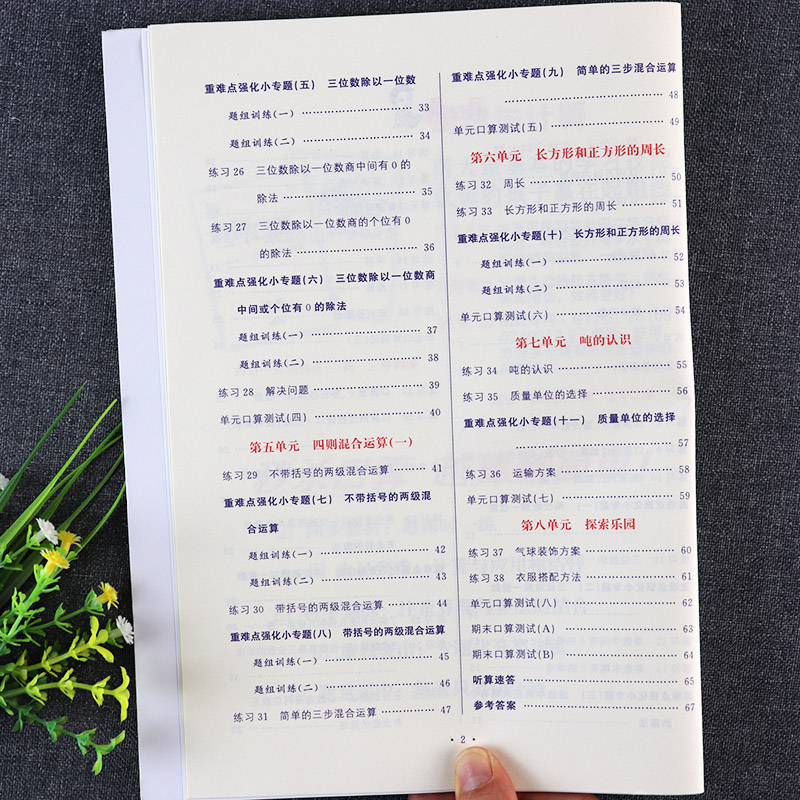 重难点强化小专题(五) 三位数除以一位数
题组训练(一) …………………… 33
题组训练(二) …………………… 34
练习26 三位数除以一位数商中间有0的
除法 …………………… 35
练习27 三位数除以一位数商的个位有0
的除法 …………………… 36
重难点强化小专题(六) 三位数除以一位数商
中间或个位有0的除法
题组训练(一) …………………… 37
题组训练(二) …………………… 38
练习28 解决问题 …………………… 39
单元口算测试(四) …………………… 40
第五单元 四则混合运算(一)
练习29 不带括号的两级混合运算 ……… 41
重难点强化小专题(七) 不带括号的两级混
合运算
题组训练(一) …………………… 42
题组训练(二) …………………… 43
练习30 带括号的两级混合运算 ……… 44
重难点强化小专题(八) 带括号的两级混合运算
题组训练(一) …………………… 45
题组训练(二) …………………… 46
练习31 简单的三步混合运算 ……… 47
重难点强化小专题(九) 简单的三步混合运算
…………………… 48
单元口算测试(五) …………………… 49
第六单元 长方形和正方形的周长
练习32 周长 …………………… 50
练习33 长方形和正方形的周长 ……… 51
重难点强化小专题(十) 长方形和正方形的周长
题组训练(一) …………………… 52
题组训练(二) …………………… 53
单元口算测试(六) …………………… 54
第七单元 吨的认识
练习34 吨的认识 …………………… 55
练习35 质量单位的选择 …………… 56
重难点强化小专题(十一) 质量单位的选择
…………………… 57
练习36 运输方案 …………………… 58
单元口算测试(七) …………………… 59
第八单元 探索乐园
练习37 气球装饰方案 …………… 60
练习38 衣服搭配方法 …………… 61
单元口算测试(八) …………………… 62
期末口算测试(A) …………………… 63
期末口算测试(B) …………………… 64
听算速答 …………………… 65
参考答案 …………………… 67
· 2 ·